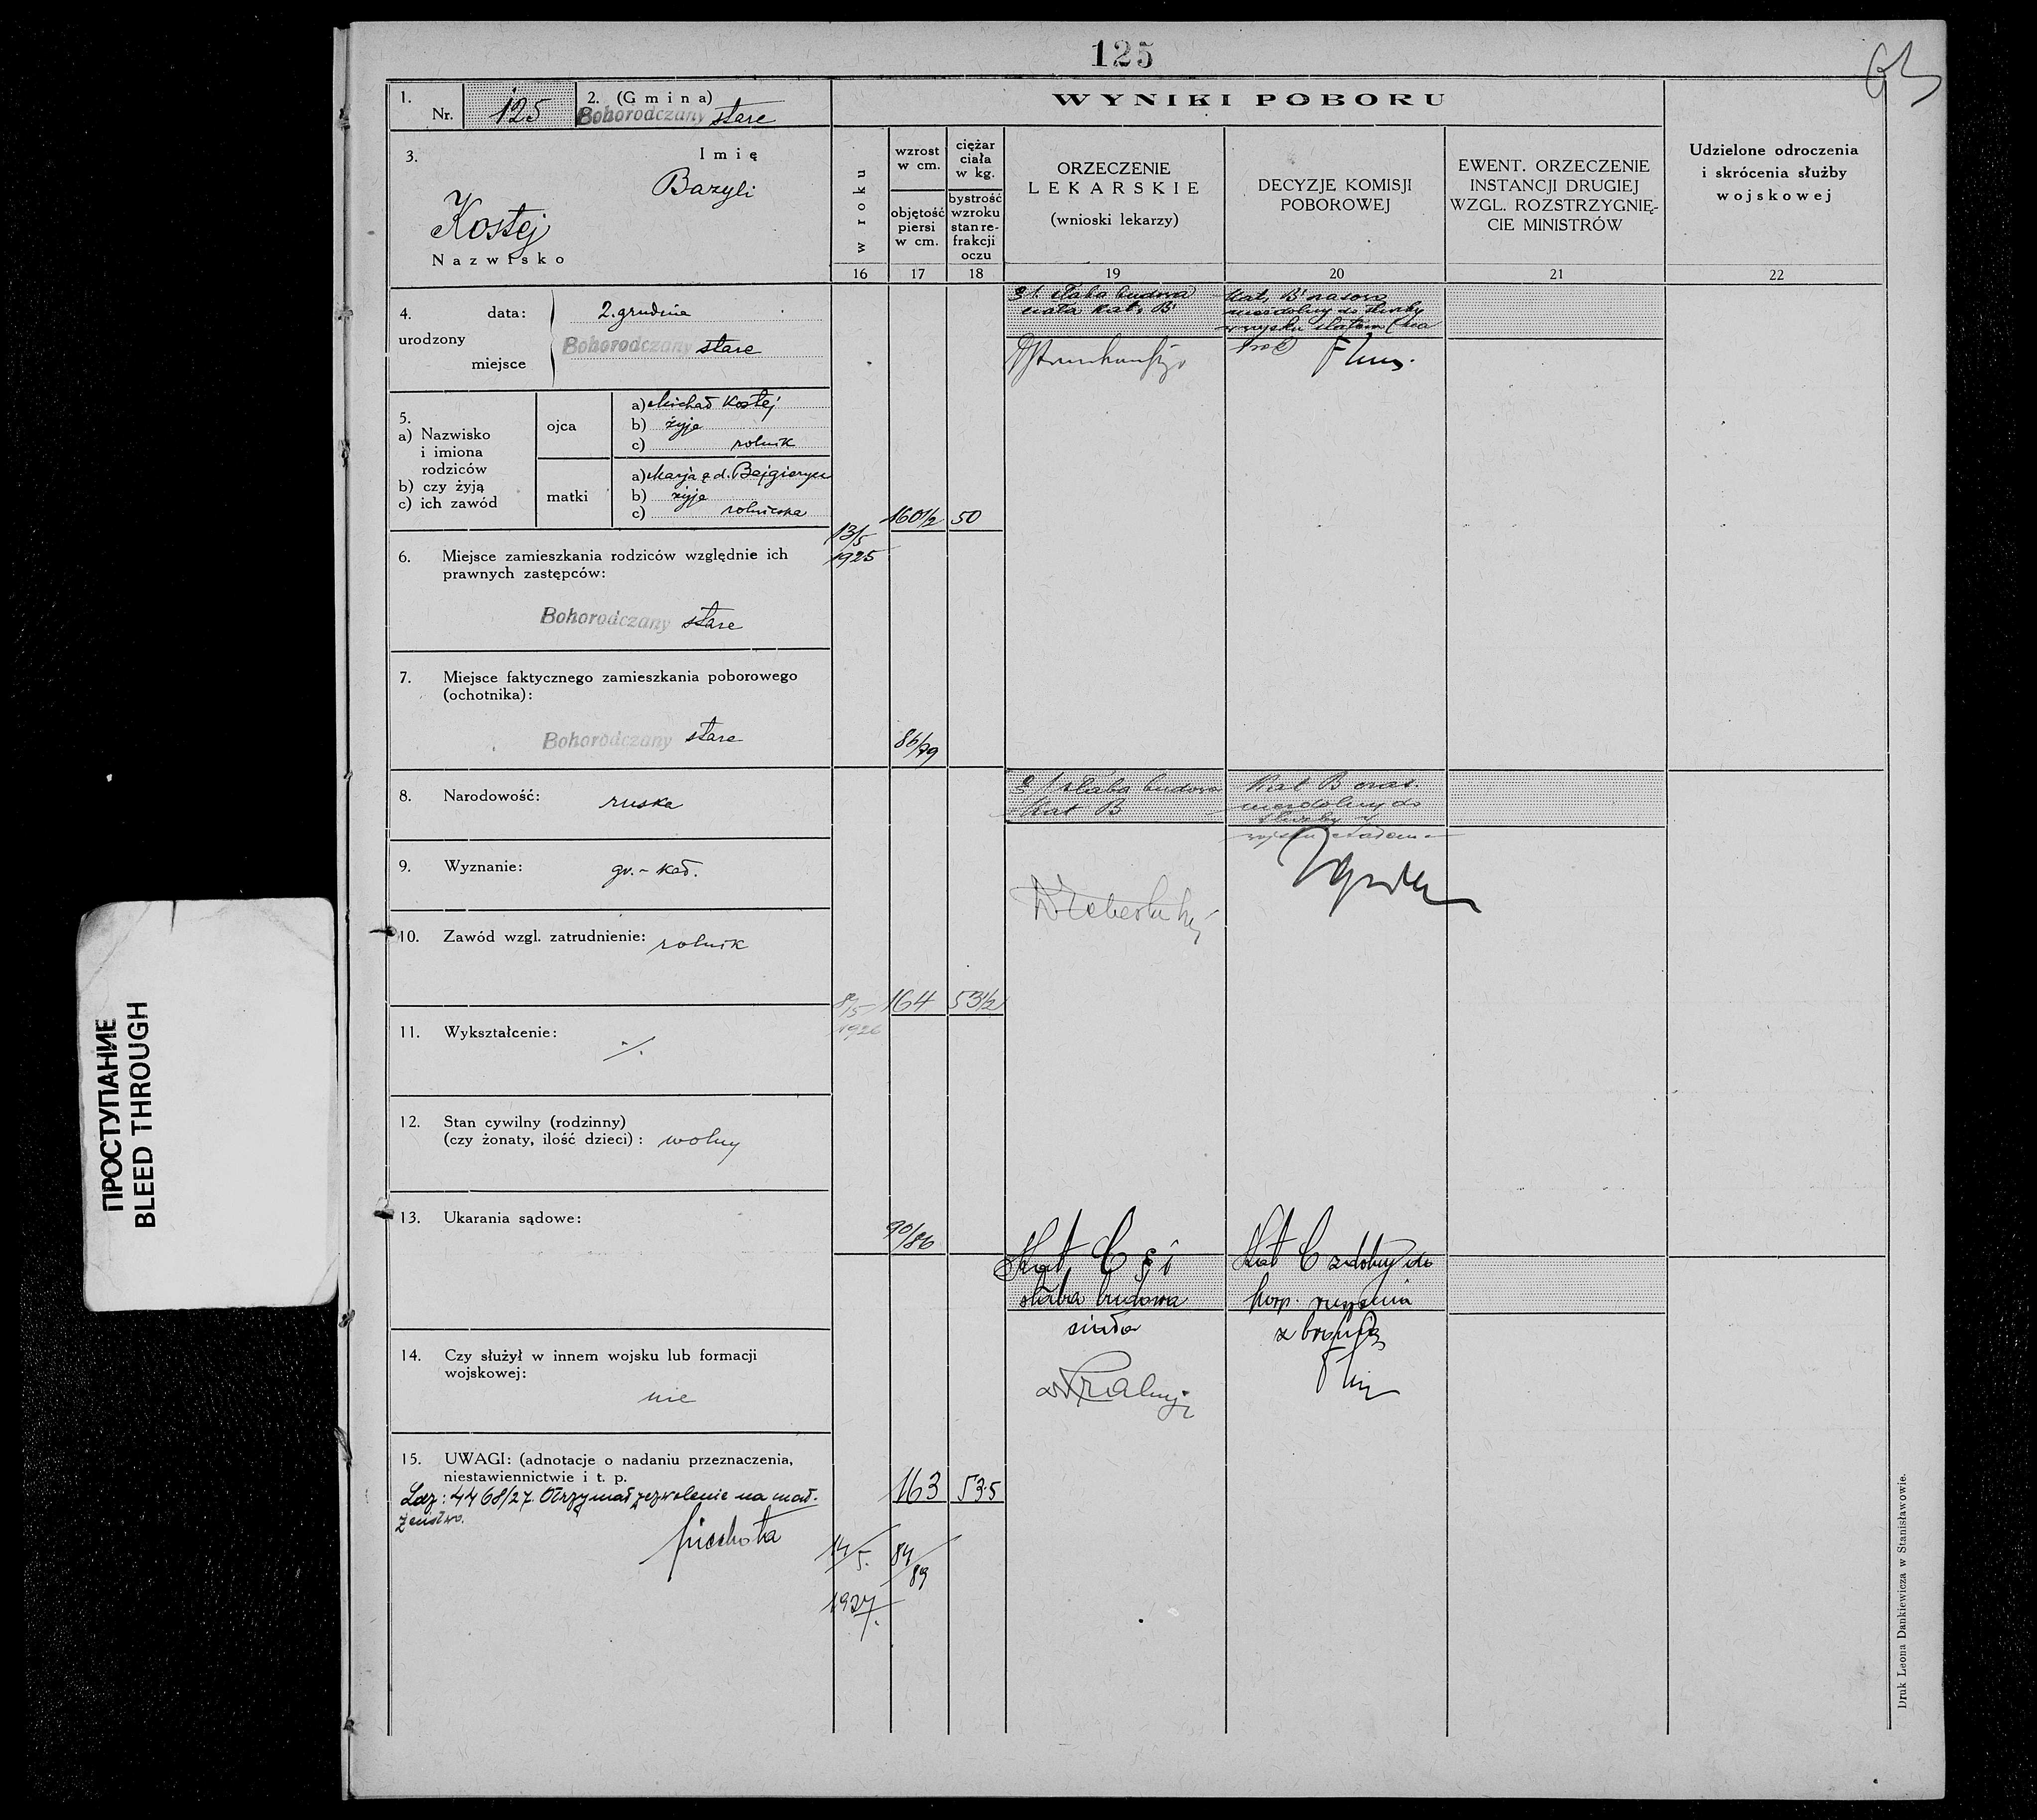 125
1. Nr. 125
2. (Gmina) Bohorodczany stare
3. Imię
Bazyli
Kostej
Nazwisko
4. urodzony
data: 2. grudnia
miejsce Bohorodczany stare
5.
a) Nazwisko i imiona rodziców
b) czy żyją
c) ich zawód
ojca
a) Michał Kostej
b) żyje
c) rolnik
matki
a) Marja z d.
b) żyje
c) rolniczka
6. Miejsce zamieszkania rodziców względnie ich
prawnych zastępców:
Bohorodczany stare
7. Miejsce faktycznego zamieszkania poborowego
(ochotnika):
Bohorodczany stare
8. Narodowość: ruska
9. Wyznanie: gr.-kat.
10. Zawód wzgl. zatrudnienie: rolnik
11. Wykształcenie: ./.
12. Stan cywilny (rodzinny)
(czy żonaty, ilość dzieci): wolny
13. Ukarania sądowe:
14. Czy służył w innem wojsku lub formacji
wojskowej:
nie
15. UWAGI: (adnotacje o nadaniu przeznaczenia,
niestawiennictwie i t. p.
4468/27. Otrzymał zezwolenie na mał-
żeństwo.
piechota
WYNIKI POBORU
w roku
16
wzrost
w cm.
objętość
piersi
w cm.
17
ciężar
ciała
w kg.
bystrość
wzroku
stan re-
frakcji
oczu
18
ORZECZENIE
LEKARSKIE
(wnioski lekarzy)
19
DECYZJE KOMISJI
POBOROWEJ
20
EWENT. ORZECZENIE
INSTANCJI DRUGIEJ
WZGL. ROZSTRZYGNIĘ-
CIE MINISTRÓW
21
Udzielone odroczenia
i skrócenia służby
wojskowej
22
13/5
1925
160½
50
86/79
słaba budowa
ciała kat. B
Kat. B czasowo
niezdolny do służby
w wojsku stałem (na
rok)
8/5
1926
164
53½
90/86
słaba budowa
Kat B
Kat B czas.
niezdolny do
służby w
wojsku stałem
14/5.
1927.
163
53.5
84/89
Kat C
słaba budowa
ciała
Kat C zdolny do
posp. ruszenia
z bronią
Druk Leona Dankiewicza w Stanisławowie.
ПРОСТУПАНИЕ
BLEED THROUGH